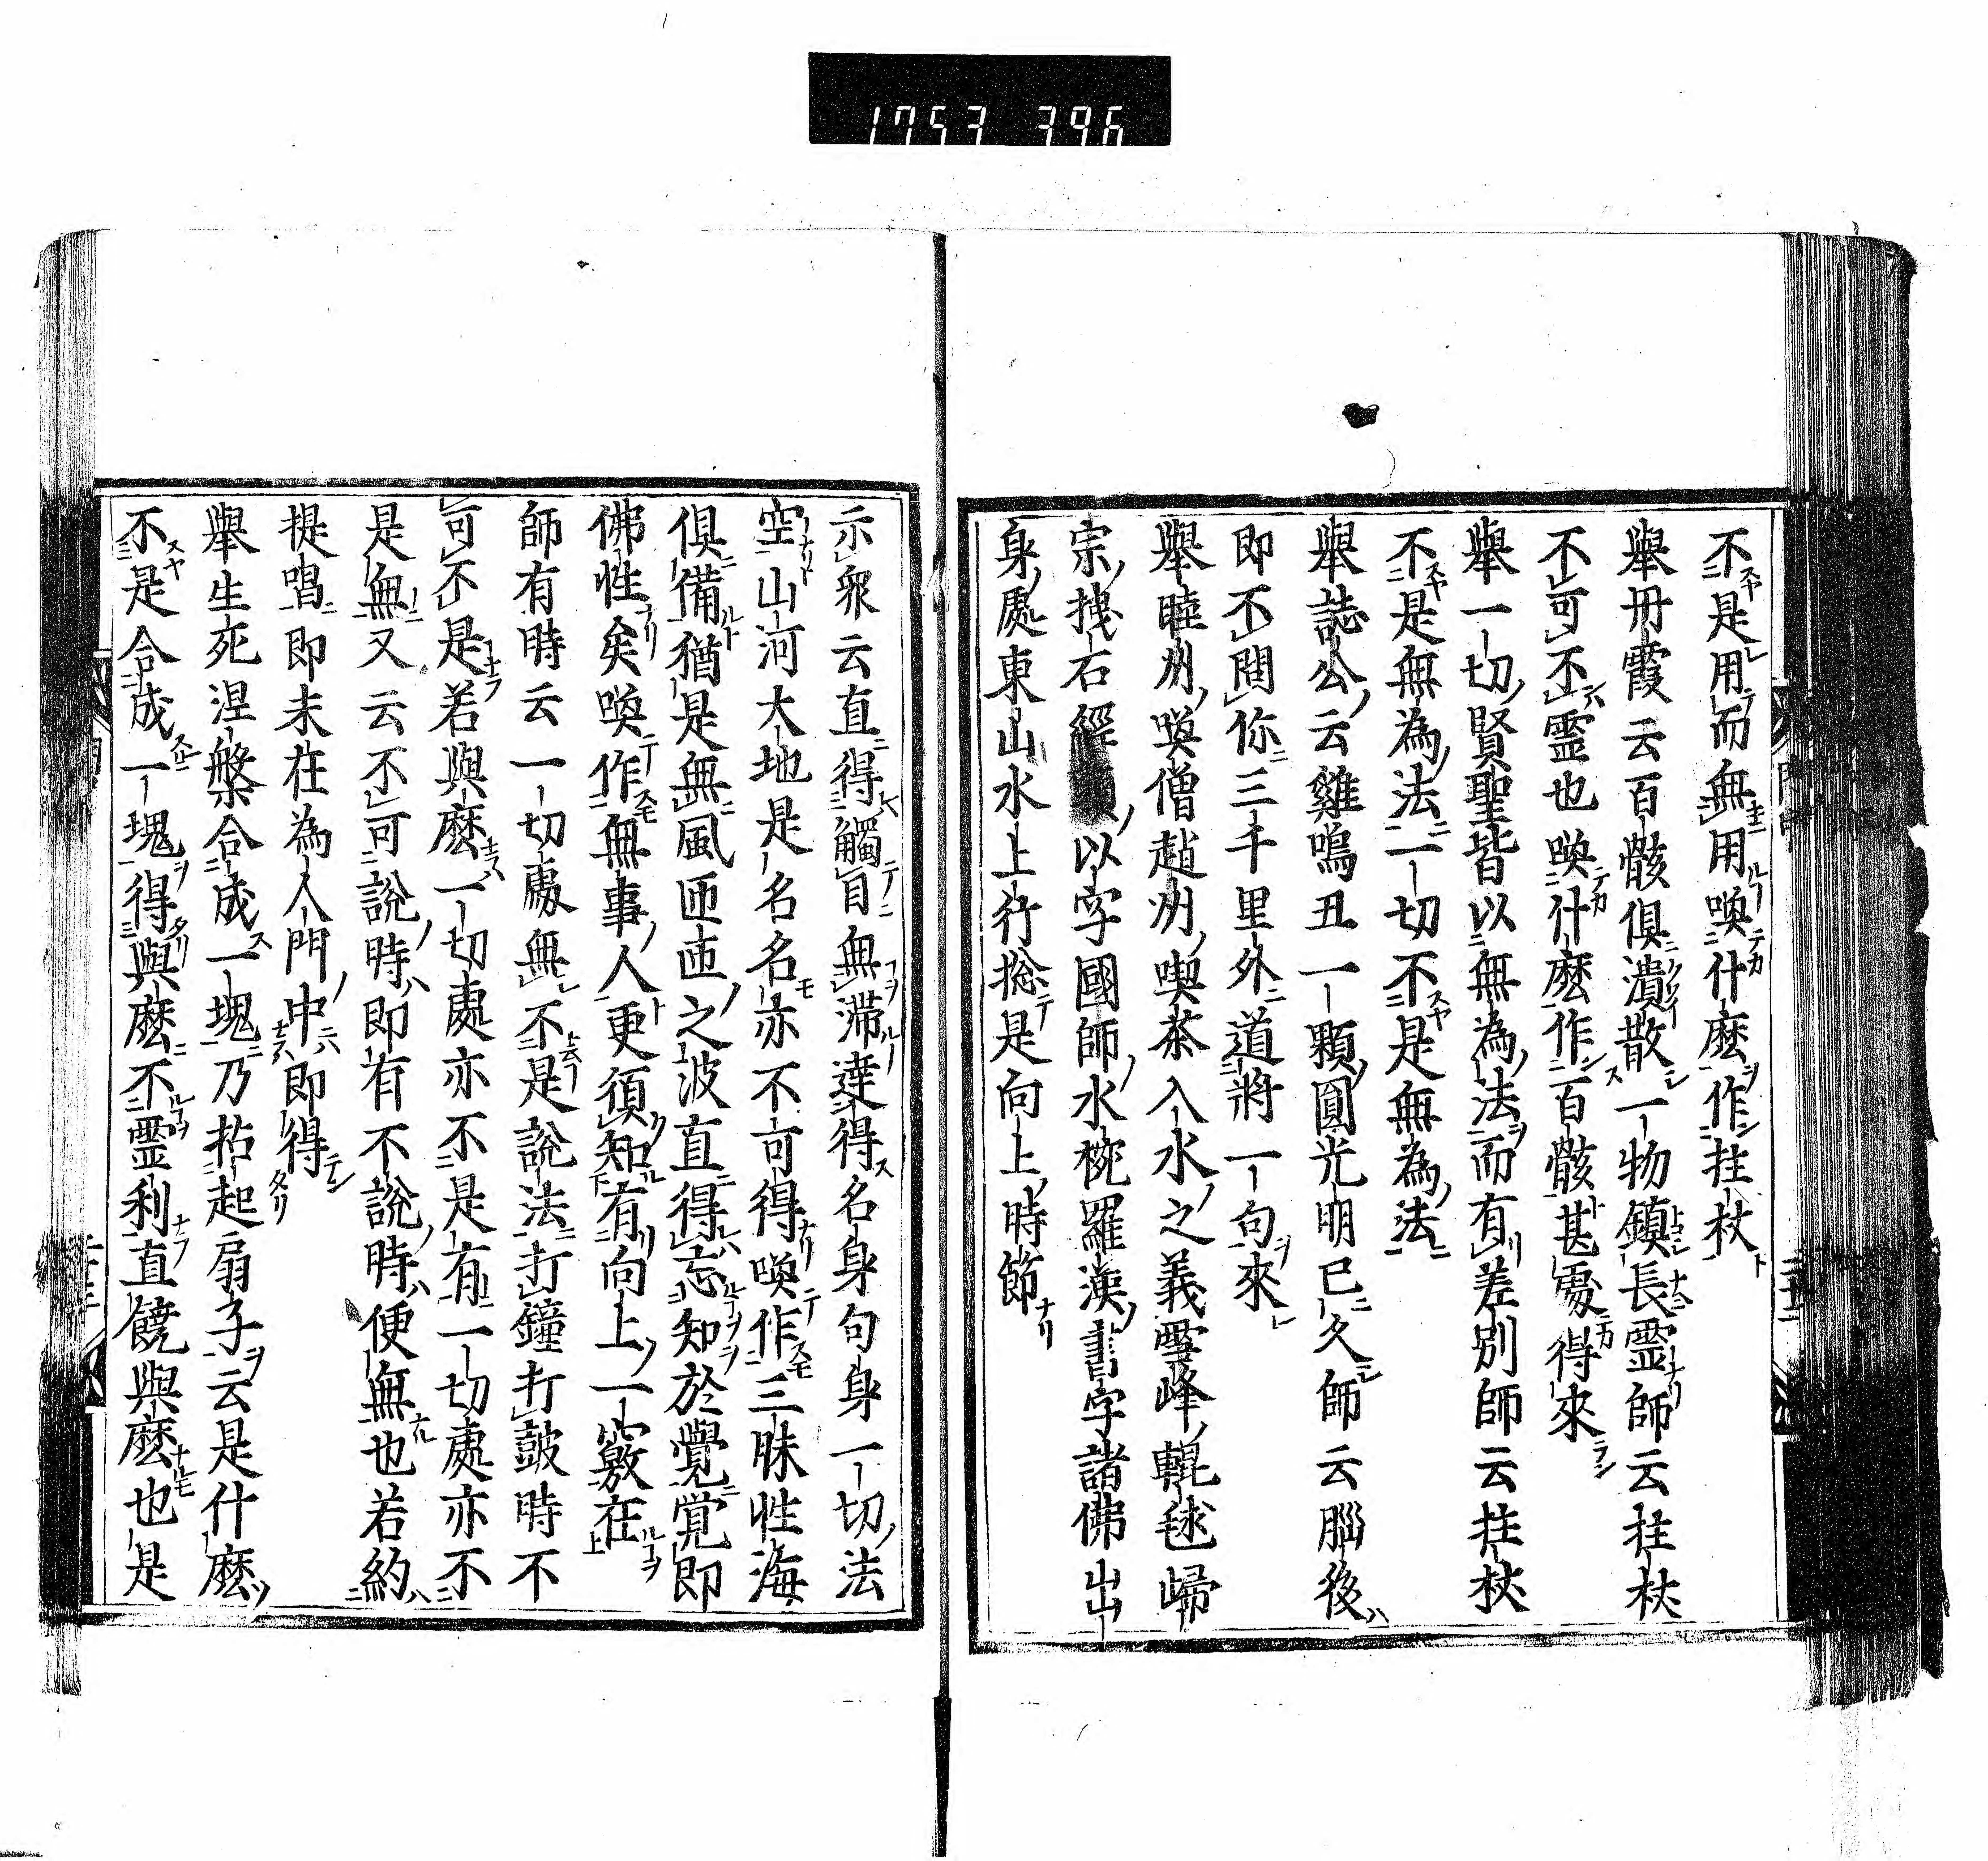 1753 396
不是用而無用喚什麼作拄杖
舉丹霞云百骸俱潰散一物鎮長霊師云拄杖
不可不霊也喚什麼作百骸甚處得來
舉一切賢聖皆以無為法而有差別師云拄杖
不是無為法一切不是無為法
舉誌公云雞鳴丑一顆圓光明已久師云腦後
即不問你三千里外道將一句來
舉睦州喚僧趙州喫茶入水之義雪峰輥毬歸
宗拽石經頭以字國師水椀羅漢書字諸佛出
身處東山水上行捴是向上時節
示衆云直得觸目無滯達得名身句身一切法
空山河大地是名名亦不可得喚作三昧性海
俱備猶是無風匝匝之波直得忘知於覺覚即
佛性矣喚作無事人更須知有向上一竅在
師有時云一切處無不是說法打鐘打皷時不
可不是若與麼一切處亦不是有一切處亦不
是無又云不可説時即有不說時便無也若約
提唱即未在為人門中即得
舉生死涅槃合成一塊乃拈起扇子云是什麼
不是合成一塊得與麼不霊利直饒與麼也是